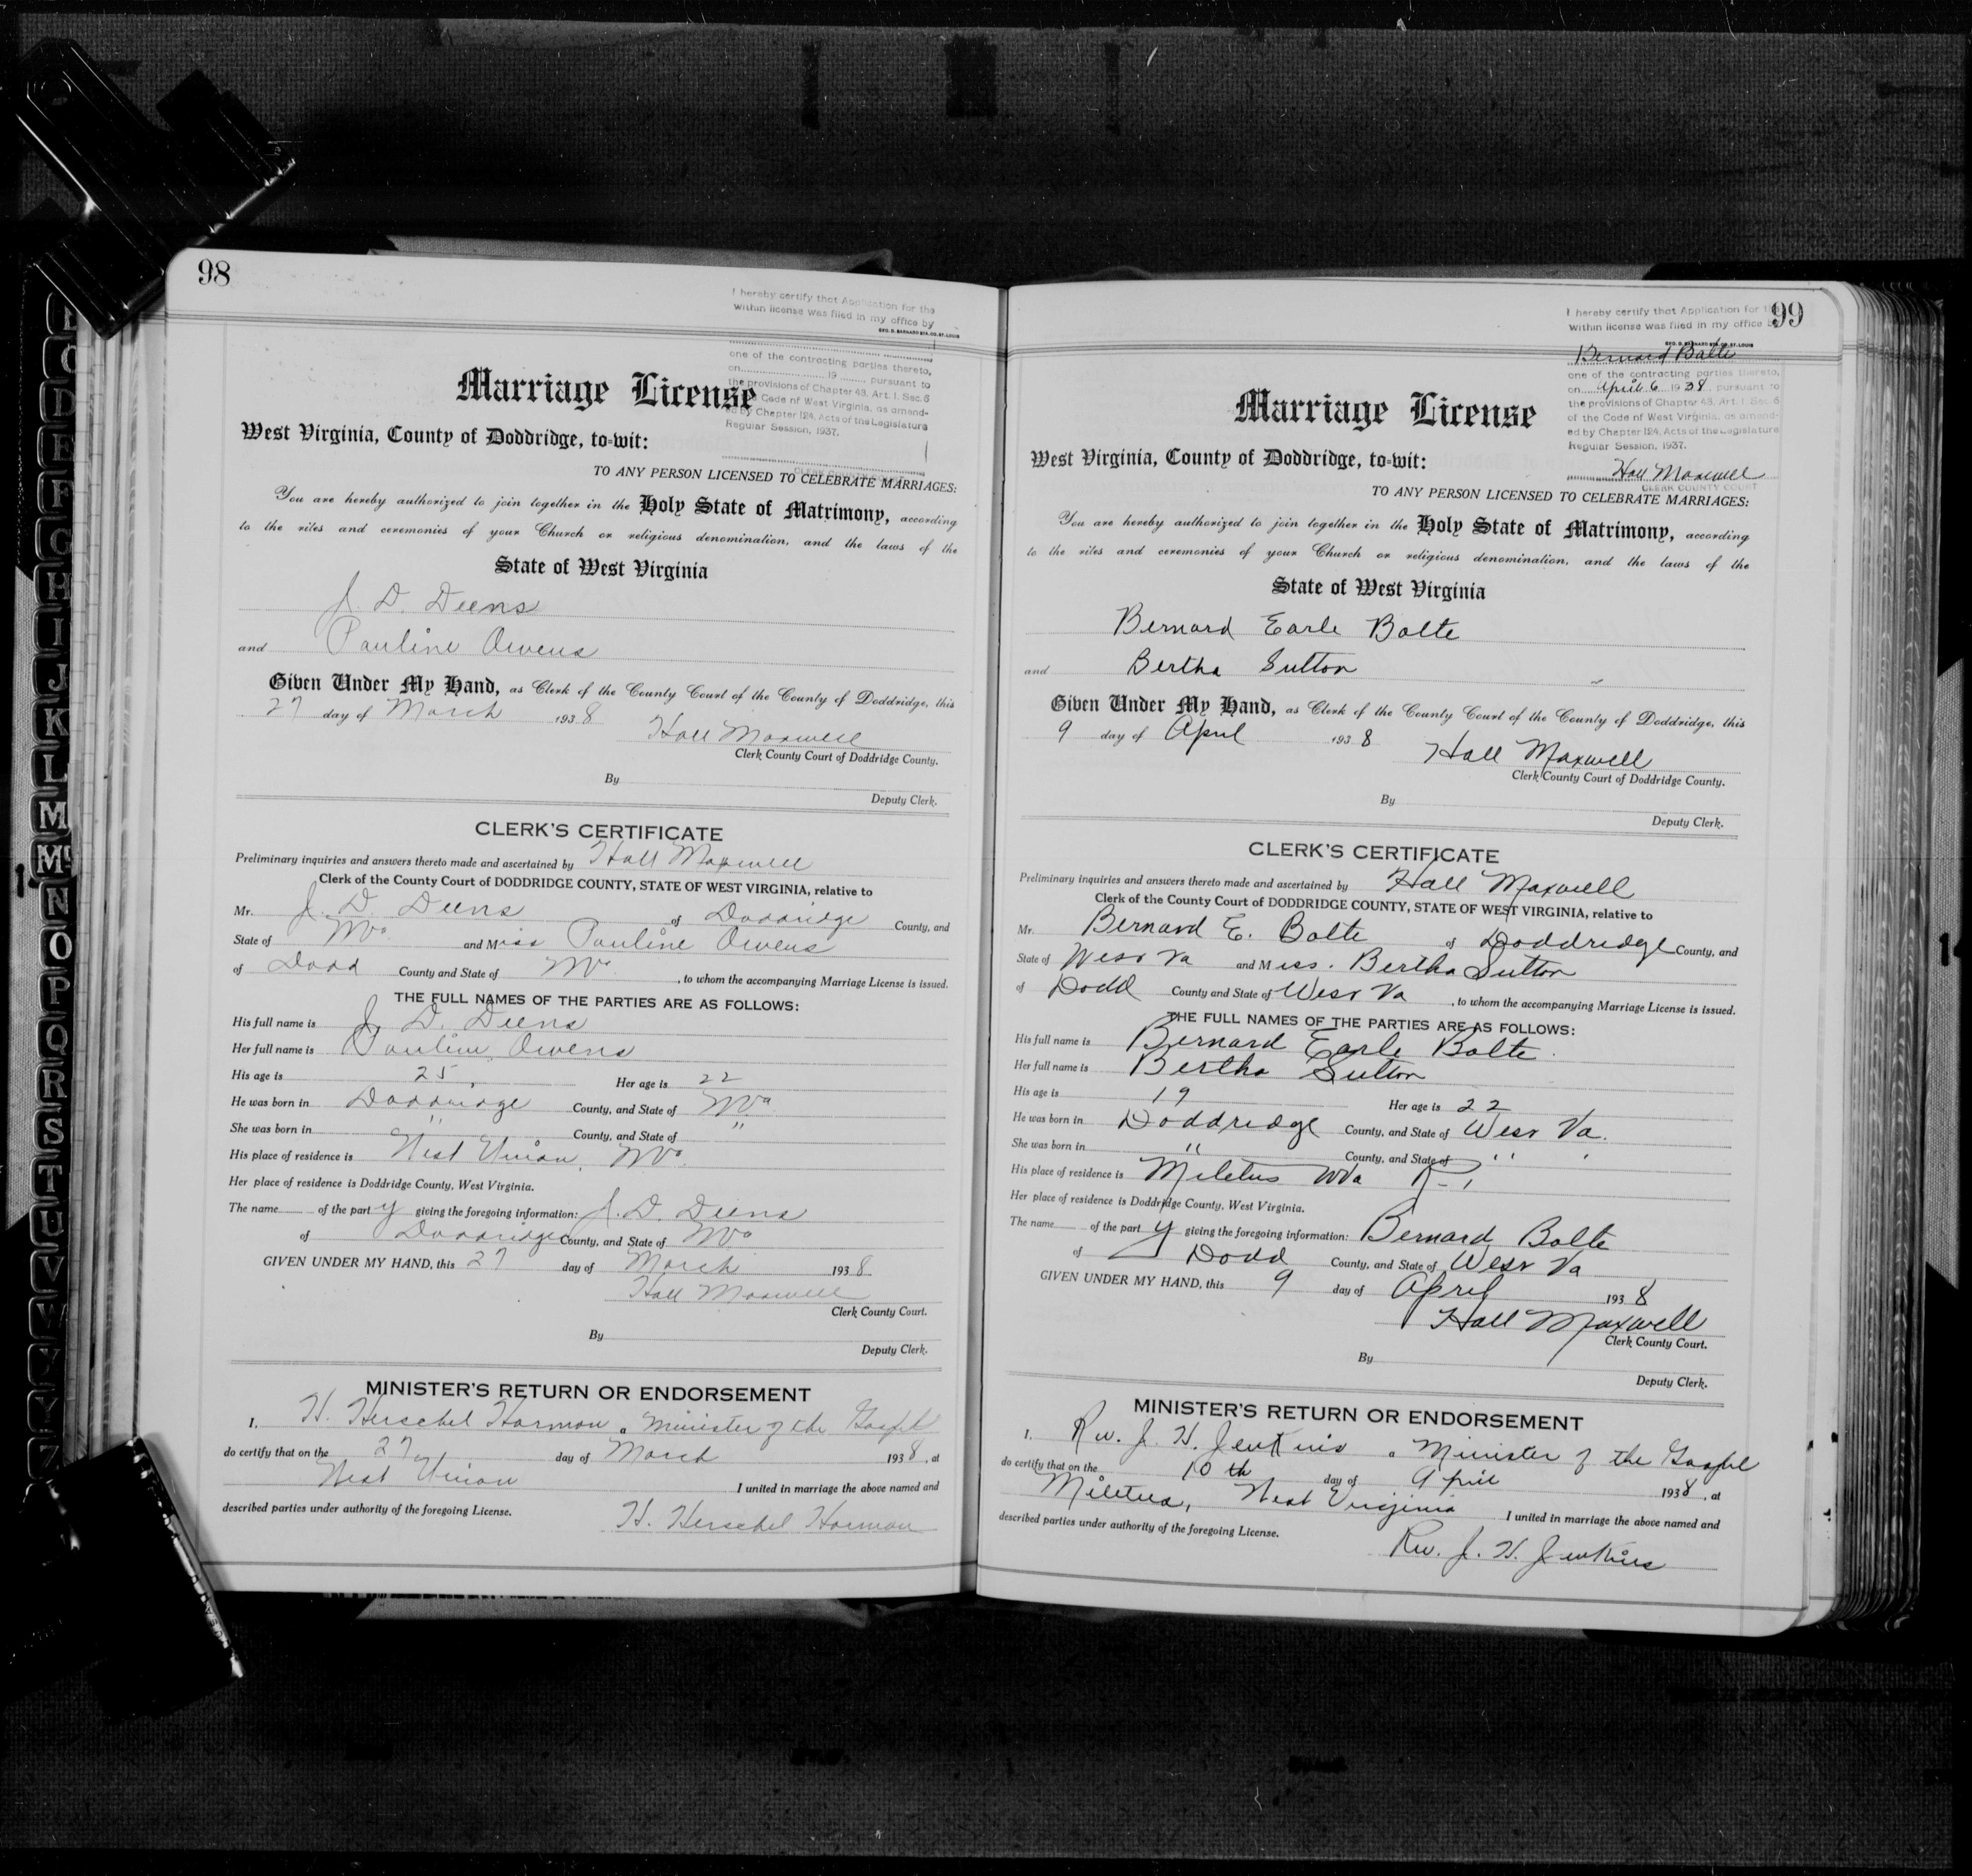 98
I hereby certify that Application for the
within license was filed in my office by
GEO. D. BARNARD STA. CO. ST. LOUIS
one of the contracting parties thereto,
on 19 pursuant to
the provisions of Chapter 48, Art. 1, Sec. 6
Code of West Virginia, as amend-
ed by Chapter 124, Acts of the Legislature
Regular Session, 1937.
CLERK COUNTY COURT
Marriage License
West Virginia, County of Doddridge, to-wit:
TO ANY PERSON LICENSED TO CELEBRATE MARRIAGES:
You are hereby authorized to join together in the Holy State of Matrimony, according
to the rites and ceremonies of your Church or religious denomination, and the laws of the
State of West Virginia
J. D. Deens
and Pauline Owens
Given Under My Hand, as Clerk of the County Court of the County of Doddridge, this
27 day of March 1938
Hall Maxwell
Clerk County Court of Doddridge County.
By
Deputy Clerk.
CLERK'S CERTIFICATE
Preliminary inquiries and answers thereto made and ascertained by Hall Maxwell
Clerk of the County Court of DODDRIDGE COUNTY, STATE OF WEST VIRGINIA, relative to
Mr. J. D. Deens of Doddridge County, and
State of WVa and Miss Pauline Owens
of Dodd County and State of WVa , to whom the accompanying Marriage License is issued.
THE FULL NAMES OF THE PARTIES ARE AS FOLLOWS:
His full name is J. D. Deens
Her full name is Pauline Owens
His age is 25 Her age is 22
He was born in Doddridge County, and State of WVa
She was born in " County, and State of "
His place of residence is West Union, WVa.
Her place of residence is Doddridge County, West Virginia.
The name of the party giving the foregoing information: J. D. Deens
of Doddridge County, and State of WVa
GIVEN UNDER MY HAND, this 27 day of March 1938
Hall Maxwell
Clerk County Court.
By
Deputy Clerk.
MINISTER'S RETURN OR ENDORSEMENT
I, H. Herschel Harmon, a Minister of the Gospel
do certify that on the 27 day of March 1938, at
West Union I united in marriage the above named and
described parties under authority of the foregoing License.
H. Herschel Harmon
99
I hereby certify that Application for the
within license was filed in my office by
GEO. D. BARNARD STA. CO. ST. LOUIS
Bernard Bolte
one of the contracting parties thereto,
on April 6 1938, pursuant to
the provisions of Chapter 48, Art. 1, Sec. 6
of the Code of West Virginia, as amend-
ed by Chapter 124, Acts of the Legislature
Regular Session, 1937.
Hall Maxwell
CLERK COUNTY COURT
Marriage License
West Virginia, County of Doddridge, to-wit:
TO ANY PERSON LICENSED TO CELEBRATE MARRIAGES:
You are hereby authorized to join together in the Holy State of Matrimony, according
to the rites and ceremonies of your Church or religious denomination, and the laws of the
State of West Virginia
Bernard Earle Bolte
and Bertha Sutton
Given Under My Hand, as Clerk of the County Court of the County of Doddridge, this
9 day of April 1938
Hall Maxwell
Clerk County Court of Doddridge County.
By
Deputy Clerk.
CLERK'S CERTIFICATE
Preliminary inquiries and answers thereto made and ascertained by Hall Maxwell
Clerk of the County Court of DODDRIDGE COUNTY, STATE OF WEST VIRGINIA, relative to
Mr. Bernard E. Bolte of Doddridge County, and
State of West Va and Miss. Bertha Sutton
of Dodd County and State of West Va , to whom the accompanying Marriage License is issued.
THE FULL NAMES OF THE PARTIES ARE AS FOLLOWS:
His full name is Bernard Earle Bolte.
Her full name is Bertha Sutton
His age is 19 Her age is 22
He was born in Doddridge County, and State of West Va.
She was born in " County, and State of "
His place of residence is Miletus WVa R-1
Her place of residence is Doddridge County, West Virginia.
The name of the party giving the foregoing information: Bernard Bolte
of Dodd County, and State of West Va
GIVEN UNDER MY HAND, this 9 day of April 1938
Hall Maxwell
Clerk County Court.
By
Deputy Clerk.
MINISTER'S RETURN OR ENDORSEMENT
I, Rev. J. H. Jenkins a Minister of the Gospel
do certify that on the 10th day of April 1938, at
Miletus, West Virginia I united in marriage the above named and
described parties under authority of the foregoing License.
Rev. J. H. Jenkins
C
D
E
F
G
H
I
J
K
L
M
Mc
N
O
P
Q
R
S
T
U
V
W
Y
Z